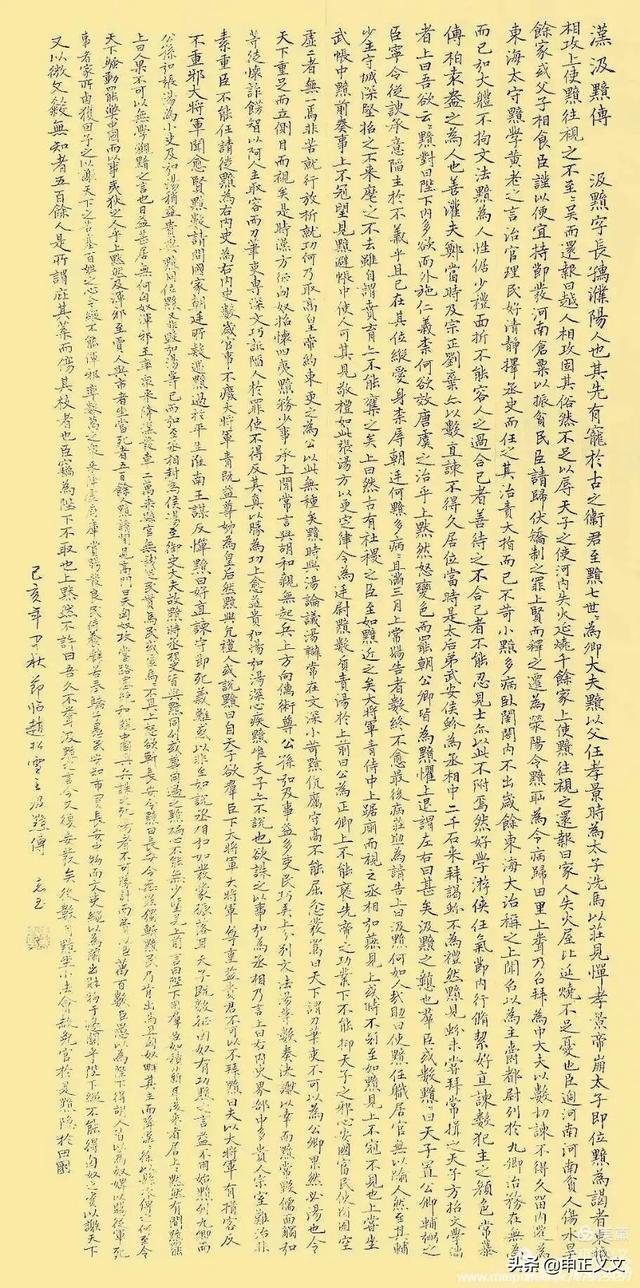 漢汲黯傳 汲黯字長孺濮陽人也其先有寵於古之衛君至黯七世世為卿大夫黯以父任孝景時為太子洗馬以莊見憚孝景帝崩太子即位黯為謁者東越
相攻上使黯往視之不至至吳而還報曰越人相攻固其俗然不足以辱天子之使河内失火延燒千餘家上使黯往視之還報曰家人失火屋比延燒不足憂也臣過河南河南貧人傷水旱萬
餘家或父子相食臣謹以便宜持節發河南倉粟以振貧民臣請歸伏矯制之罪上賢而釋之遷為滎陽令黯恥為令病歸田里上聞乃召拜為中大夫以數切諫不得久留内遷為
東海太守黯學黃老之言治官理民好清靜擇丞史而任之其治責大指而已不苛小黯多病臥閨閤内不出歲餘東海大治稱之上聞召以為主爵都尉列於九卿治務在無為
而已弘大體不拘文法黯為人性倨少禮面折不能容人之過合己者善待之不合己者不能忍見士亦以此不附焉然好學游俠任氣節内行脩絜好直諫數犯主之顏色常慕
傅柏袁盎之為人也善灌夫鄭當時及宗正劉棄亦以數直諫不得久居位當時是太后弟武安侯蚡為丞相中二千石来拜謁蚡不為禮然黯見蚡未嘗拜常揖之天子方招文學儒
者上曰吾欲云云黯對曰陛下内多欲而外施仁義柰何欲效唐虞之治乎上默然怒變色而罷朝公卿皆為黯懼上退謂左右曰甚矣汲黯之戇也羣臣或數黯黯曰天子置公卿輔弼之
臣寧令從諛承意陷主於不義乎且已在其位縱愛身柰辱朝廷何黯多病病且滿三月上常賜告者數終不愈最後病莊助為請告上曰汲黯何如人哉助曰使黯任職居官無以踰人然至其輔
少主守城深堅招之不来麾之不去雖自謂賁育亦不能奪之矣上曰然古有社稷之臣至如黯近之矣大將軍青侍中上踞廁而視之丞相弘燕見上或時不冠至如黯見上不冠不見也上嘗坐
武帳中黯前奏事上不冠望見黯避帳中使人可其奏其見敬禮如此張湯方以更定律令為廷尉黯數質責湯於上前曰公為正卿上不能褒先帝之功業下不能抑天下之邪心安國富民使囹圄空
虛二者無一焉非苦就行放析就功何乃取高皇帝約束紛更之為公以此無種矣黯時與湯論議湯辯常在文深小苛黯伉厲守高不能屈忿發罵曰天下謂刀筆吏不可以為公卿果然必湯也令
天下重足而立側目而視矣是時漢方征匈奴招懷四夷黯務少事乘上間常言與胡和親無起兵上方向儒術尊公孫弘及事益多吏民巧弄上分别文法湯等數奏決讞以幸而黯常毀儒面觸弘
等徒懷詐飾智以阿人主取容而刀筆吏專深文巧詆陷人於罪使不得反其真以勝為功上愈益貴弘湯弘湯深心疾黯唯天子亦不說也欲誅之以事弘為丞相乃言上曰右内史界部中多貴人宗室難治非
素重臣不能任請徙黯為右内史為右内史數歲官事不廢大將軍青既益尊姊為皇后然黯與亢禮人或說黯曰自天子欲羣臣下大將軍大將軍尊重益貴君不可以不拜黯曰夫以大將軍有揖客反
不重邪大將軍聞愈賢黯數請問國家朝廷所疑遇黯過於平生淮南王謀反憚黯曰好直諫守節死義難惑以非至如說丞相弘如發蒙振落耳天子既數征匈奴有功黯之言益不用始黯列九卿而
公孫弘張湯為小吏及弘湯稍益貴與黯同位黯又非毀弘湯等已而弘至丞相封為侯湯至御史大夫故黯時丞相史皆與黯同列或尊用過之黯褊心不能無少望見上前言曰陛下用羣臣如積薪耳後来者居上上默然有間黯罷
上曰人果不可以無學觀黯之言也日益甚居無何匈奴渾邪王率衆来降漢發車二萬乘縣官無錢從民貰馬民或匿馬馬不具上怒欲斬長安令黯曰長安令無罪獨斬黯民乃肯出馬且匈奴畔其主而降漢漢徐以縣次傳之何至令
天下騷動罷弊中國而以事夷狄之人乎上默然及渾邪至賈人與市者坐當死者五百餘人黯請間見高門曰夫匈奴攻當路塞絶和親中國興兵誅之死傷者不可勝計而費以巨萬百數臣愚以為陛下得胡人皆以為奴婢以賜從軍死
事者家所鹵獲因予之以謝天下之苦塞百姓之心今縱不能渾邪率數萬之衆来降虛府庫賞賜發良民侍養譬若奉驕子愚民安知市買長安中物而文吏繩以為闌出財物于邊關乎陛下縱不能得匈奴之資以謝天下
又以微文殺無知者五百餘人是所謂庇其葉而傷其枝者也臣竊為陛下不取也上默然不許曰吾久不聞汲黯之言今又復妄發矣後數月黯坐小法會赦免官於是黯隱於田園
己亥年早秋節臨趙松雪書汲黯傳 志玉
头条 @申正义文